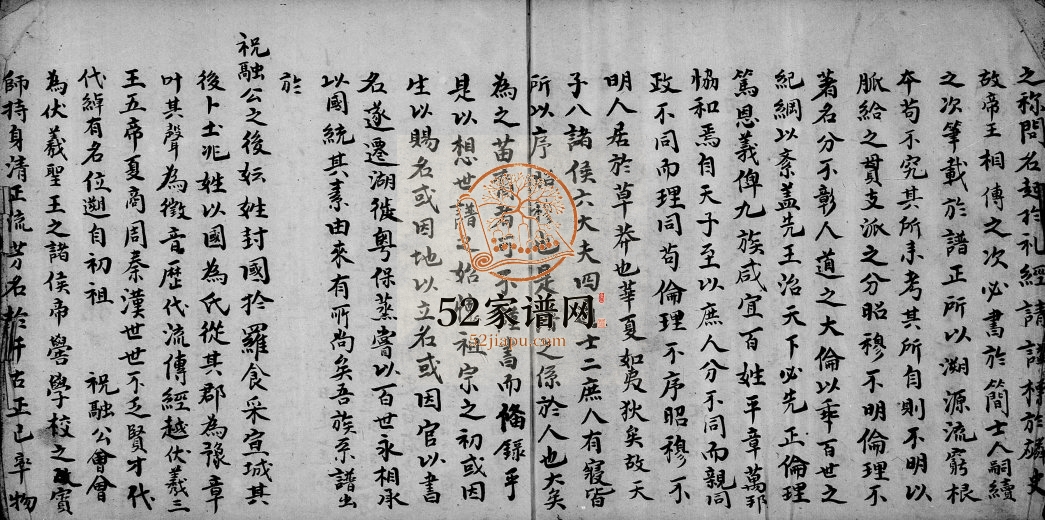 之称問名
故帝王相傳之次必書於簡士人嗣續
之次筆載於譜正所以溯源流窮根
本苟不究其所來考其所自則不明以
脈絡之貫支派之分昭穆不明倫理不
著名分不彰人道之大倫以乖百世之
紀綱以紊盖先王治天下必先正倫理
篤恩義俾九族咸宜百姓平章萬邦
恊和焉自天子至以庶人分不同而親同
政不同而理同苟倫理不序昭穆不
明人居於草莽也華夏如夷狄矣故天
子八諸侯六大夫四士二庶人有寢皆
所以序昭穆也是之係於人也大矣
為之苗裔者可不書而俻錄乎
是以想世譜之始祖宗之初或因
生以賜名或因地以立名或因官以書
名遂遷湖徙粤保蒸嘗以百世永相承
以國統其素由來有所尚矣吾族系譜出
於
祝融公之後妘姓封國於羅食采宣城其
後卜士兆姓以國為氏從其郡為豫章
叶其聲為徵音歷代流傳經越伏羲三
王五帝夏商周秦漢世世不乏賢才代
代綽有名位遡自初祖 祝融公會會
為伏羲聖王之諸侯帝嚳學校之賓
師持身清正流芳名於千古正己率物
52家谱网
52jiapu.com